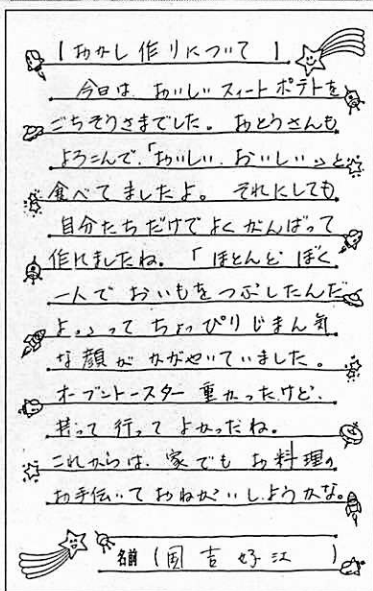 【おかし作りについて】
今日は、おいしいスィートポテトを
ごちそうさまでした。おとうさんも
よろこんで、「おいしい、おいしい」と
食べてましたよ。それにしても
自分たちだけでよくがんばって
作れましたね。「ほとんどぼく
一人でおいもをつぶしたんだ
よ。」ってちょっぴりじまん気
な顔がかがやいていました。
オーブントースター重かったけど、
持って行ってよかっだね。
これからは、家でもお料理の
お手伝いておねがいしようかな。
名前(国吉好江)